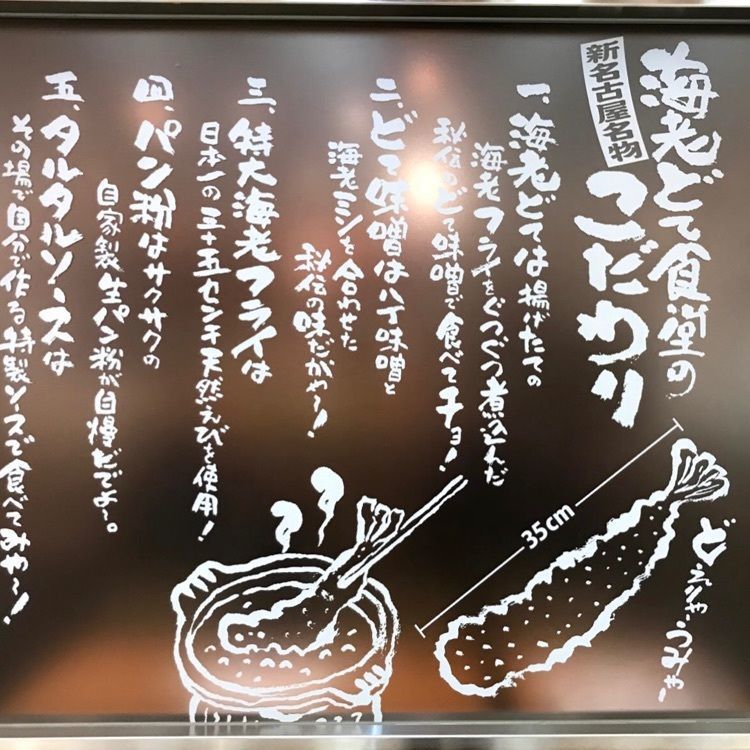 海老どて食堂の
新名古屋名物
こだわり
一、海老どては揚げたての
海老フライをぐつぐつ煮込んだ
秘伝のどて味噌で食べてチョ!
二、どて味噌は八丁味噌と
海老ミソを合わせた
秘伝の味だがや〜!
三、特大海老フライは
日本一の三十五センチ天然えびを使用!
四、パン粉はサクサクの
自家製生パン粉が自慢だでよ〜。
五、タルタルソースは
その場で自分で作る特製ソースで食べてみや〜!
35cm
どえりゃ〜うみゃ〜